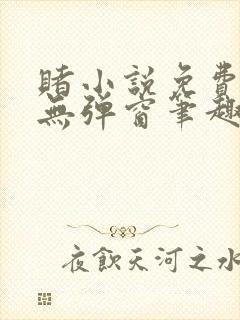 賭小説免費
無弹窗筆趣
夜飲天河之水